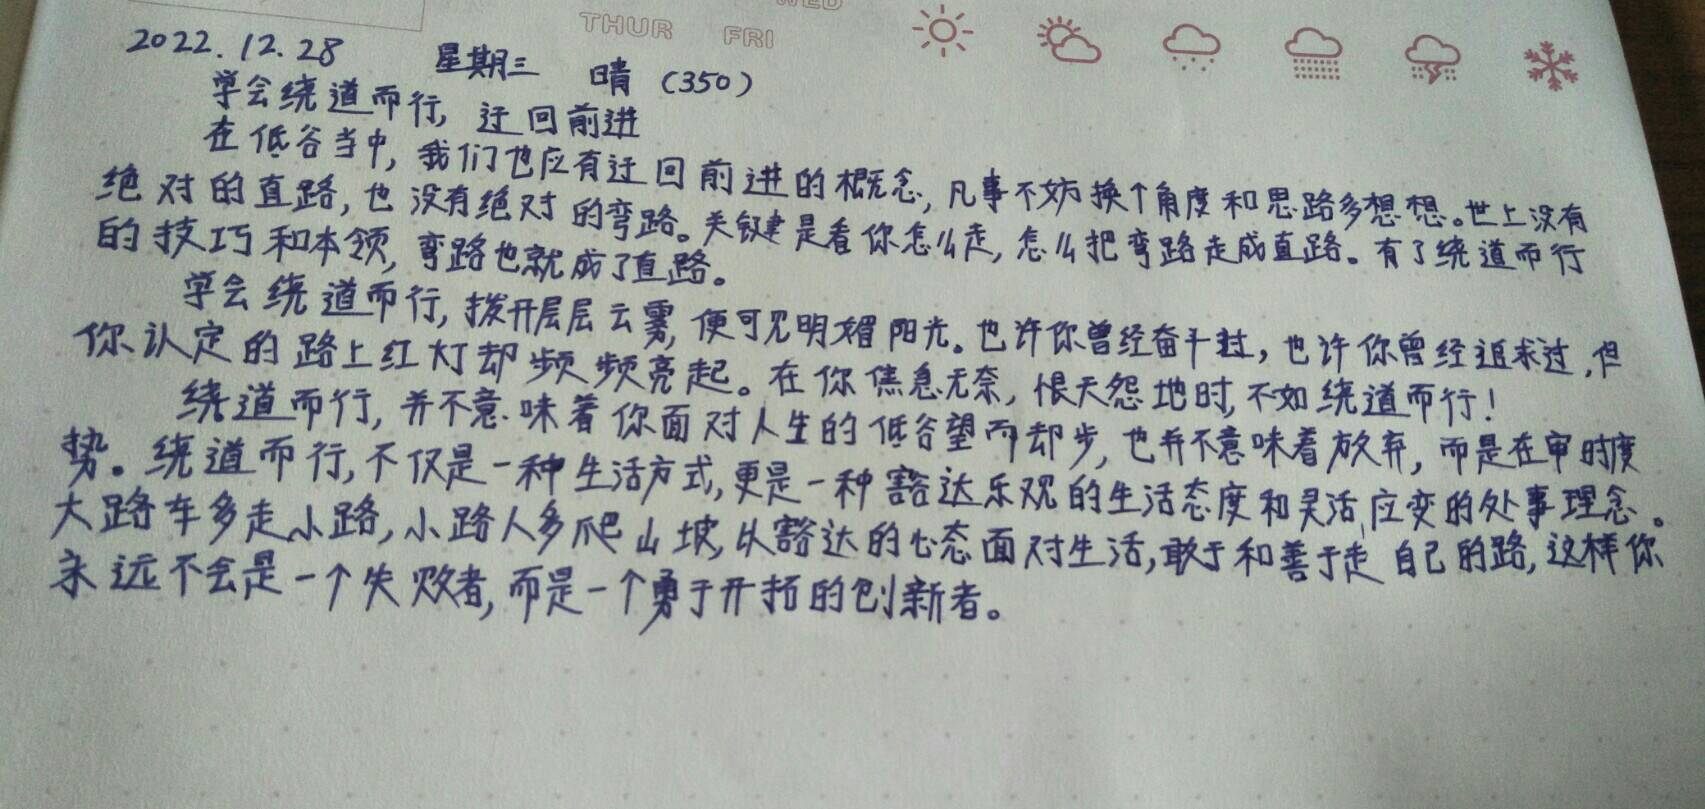 WED
THUR FRI
2022.12.28 星期三 晴（350）
学会绕道而行，迂回前进
在低谷当中，我们也应有迂回前进的概念，凡事不妨换个角度和思路多想想。世上没有
绝对的直路，也没有绝对的弯路。关键是看你怎么走，怎么把弯路走成直路。有了绕道而行
的技巧和本领，弯路也就成了直路。
学会绕道而行，拨开层层云雾，便可见明媚阳光。也许你曾经奋斗过，也许你曾经追求过，但
你认定的路上红灯却频频亮起。在你焦急无奈，恨天怨地时，不如绕道而行！
绕道而行，并不意味着你面对人生的低谷望而却步，也并不意味着放弃，而是在审时度
势。绕道而行，不仅是一种生活方式，更是一种豁达乐观的生活态度和灵活应变的处事理念。
大路车多走小路，小路人多爬山坡，以豁达的心态面对生活，敢于和善于走自己的路，这样你
永远不会是一个失败者，而是一个勇于开拓的创新者。